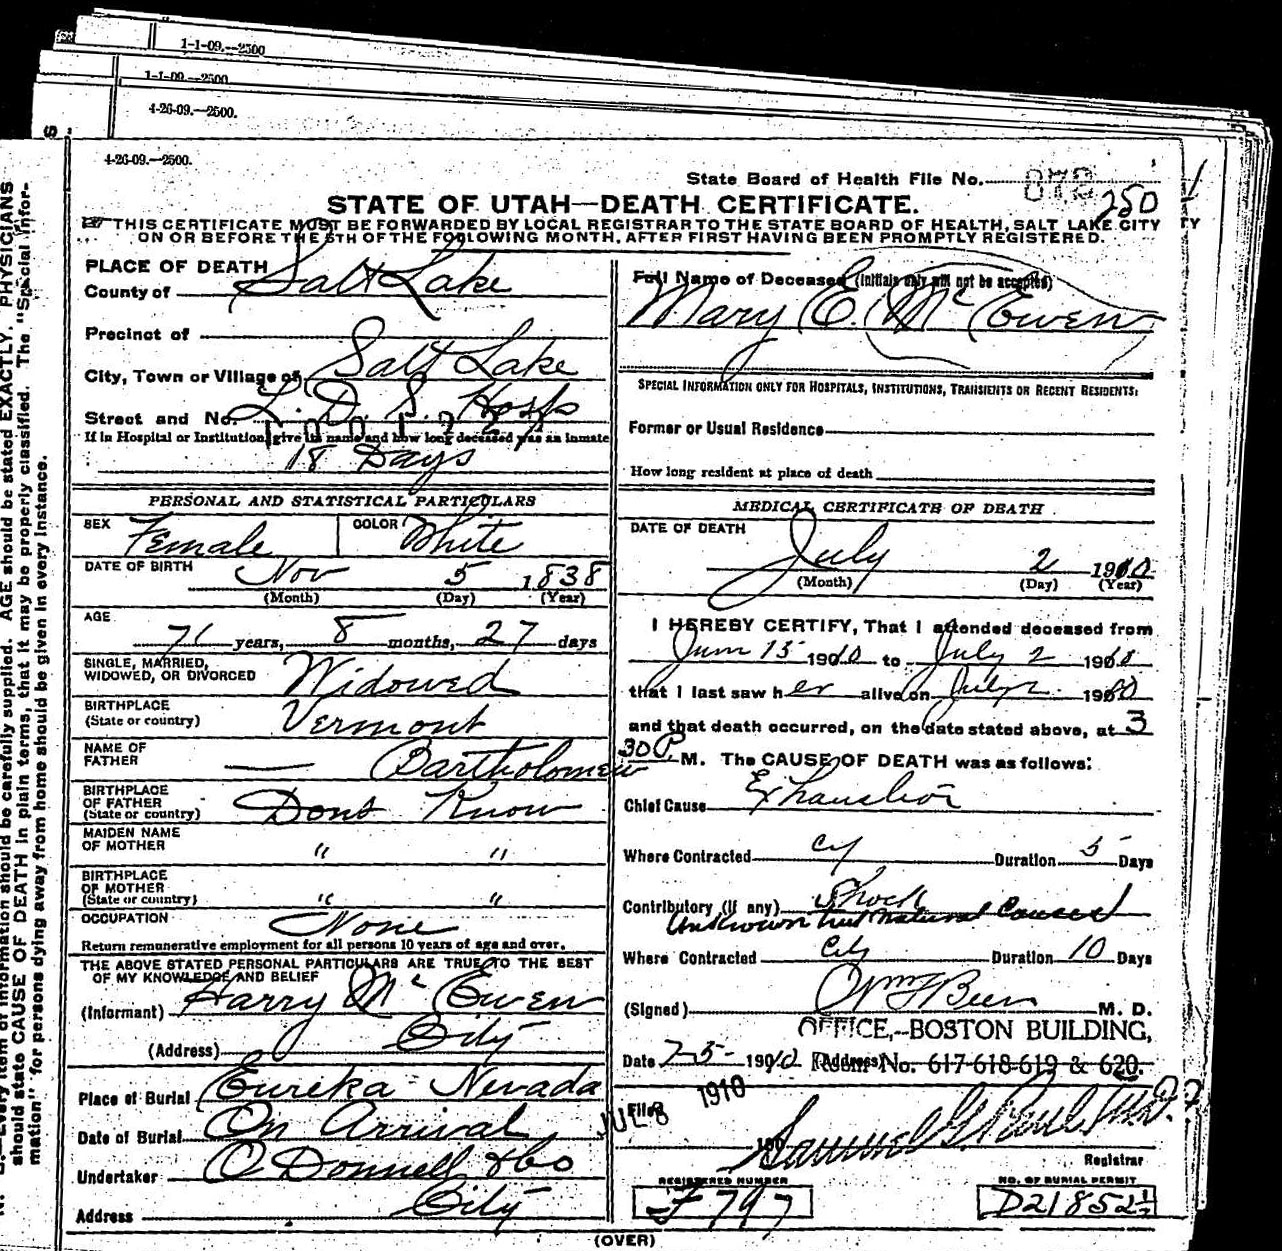 1-1-09.--2500
1-1-09.--2500
4-26-09.--2500.
4-26-09.--2500.
State Board of Health File No. 250
STATE OF UTAH—DEATH CERTIFICATE.
THIS CERTIFICATE MUST BE FORWARDED BY LOCAL REGISTRAR TO THE STATE BOARD OF HEALTH, SALT LAKE CITY
ON OR BEFORE THE 5TH OF THE FOLLOWING MONTH, AFTER FIRST HAVING BEEN PROMPTLY REGISTERED.
PLACE OF DEATH
County of Salt Lake
Precinct of
City, Town or Village of Salt Lake
Street and No. L. D. S. Hosp
If in Hospital or Institution, give its name and how long deceased was an inmate
18 Days
PERSONAL AND STATISTICAL PARTICULARS
SEX Female COLOR White
DATE OF BIRTH Nov 5 1838
(Month) (Day) (Year)
AGE
71 years, 8 months, 27 days
SINGLE, MARRIED,
WIDOWED, OR DIVORCED Widowed
BIRTHPLACE
(State or country) Vermont
NAME OF
FATHER — Bartholomew
BIRTHPLACE
OF FATHER
(State or country) Dont Know
MAIDEN NAME
OF MOTHER " "
BIRTHPLACE
OF MOTHER
(State or country) " "
OCCUPATION None
Return remunerative employment for all persons 10 years of age and over.
THE ABOVE STATED PERSONAL PARTICULARS ARE TRUE TO THE BEST
OF MY KNOWLEDGE AND BELIEF
(Informant) Harry McEwen
(Address) City
Place of Burial Eureka Nevada
Date of Burial On Arrival
Undertaker O'Donnell & Co
Address City
Full Name of Deceased (Initials only will not be accepted)
Mary E. McEwen
SPECIAL INFORMATION ONLY FOR HOSPITALS, INSTITUTIONS, TRANSIENTS OR RECENT RESIDENTS:
Former or Usual Residence
How long resident at place of death
MEDICAL CERTIFICATE OF DEATH
DATE OF DEATH
July 2 1910
(Month) (Day) (Year)
I HEREBY CERTIFY, That I attended deceased from
Jun 15 1910 to July 2 1910
that I last saw her alive on July 2 1910
and that death occurred, on the date stated above, at 3
30 P. M. The CAUSE OF DEATH was as follows:
Chief Cause Exhaustion
Where Contracted Cy Duration 5 Days
Contributory (if any) Shock
Unknown but natural Caused
Where Contracted City Duration 10 Days
(Signed) M. D.
OFFICE,--BOSTON BUILDING,
Date 7-5- 1910 (Address) Room No. 617-618-619 & 620.
Filed JUL 8 1910
Samuel G. Paul M.D.
Registrar
REGISTERED NUMBER
F797
NO. OF BURIAL PERMIT
D21852½
(OVER)
N. B.—Every item of information should be carefully supplied. AGE should be stated EXACTLY. PHYSICIANS
should state CAUSE OF DEATH in plain terms, that it may be properly classified. The "Special Infor-
mation" for persons dying away from home should be given in every instance.